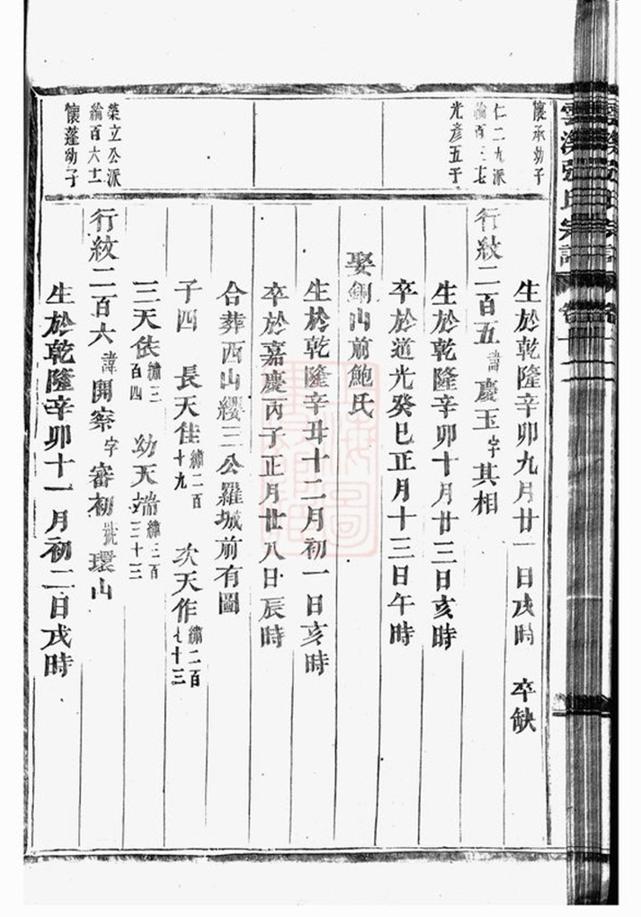 張氏宗譜
懷承幼子
生於乾隆辛卯九月廿一日戌時 卒缺
仁二九派
綸百三七
光彥五子
行紋二百五諱慶玉字其相
生於乾隆辛卯十月廿三日亥時
卒於道光癸巳正月十三日午時
娶銅山前鮑氏
生於乾隆辛丑十二月初一日亥時
卒於嘉慶丙子正月廿八日辰時
合葬西山纓三公羅城前有圖
子四 長天佳繡二百十九 次天作繡二百七十三
三天依繡三百四 幼天端繡三百三十三
榮立公派
綸百六十
懷蓬幼子
行紋二百六諱開察字審初號環山
生於乾隆辛卯十一月初二日戌時